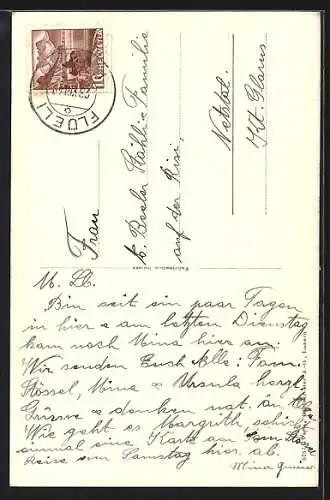 HELVETIA
10
FLÜEL
Frau
Beeler Stähli & Familie
auf der Risi,
Netstal.
Kt. Glarus
M. L.
Bin seit ein paar Tagen
in hier & am letzten Dienstag
kam noch Mina hier an.
Wir senden Euch Alle: Fam.
Stössel, Mina & Ursula herzl.
Grüsse & danken nat. an
Wie geht es Margrith, schickt
einmal eine Karte am
Reise am Samstag hier ab.
Mina